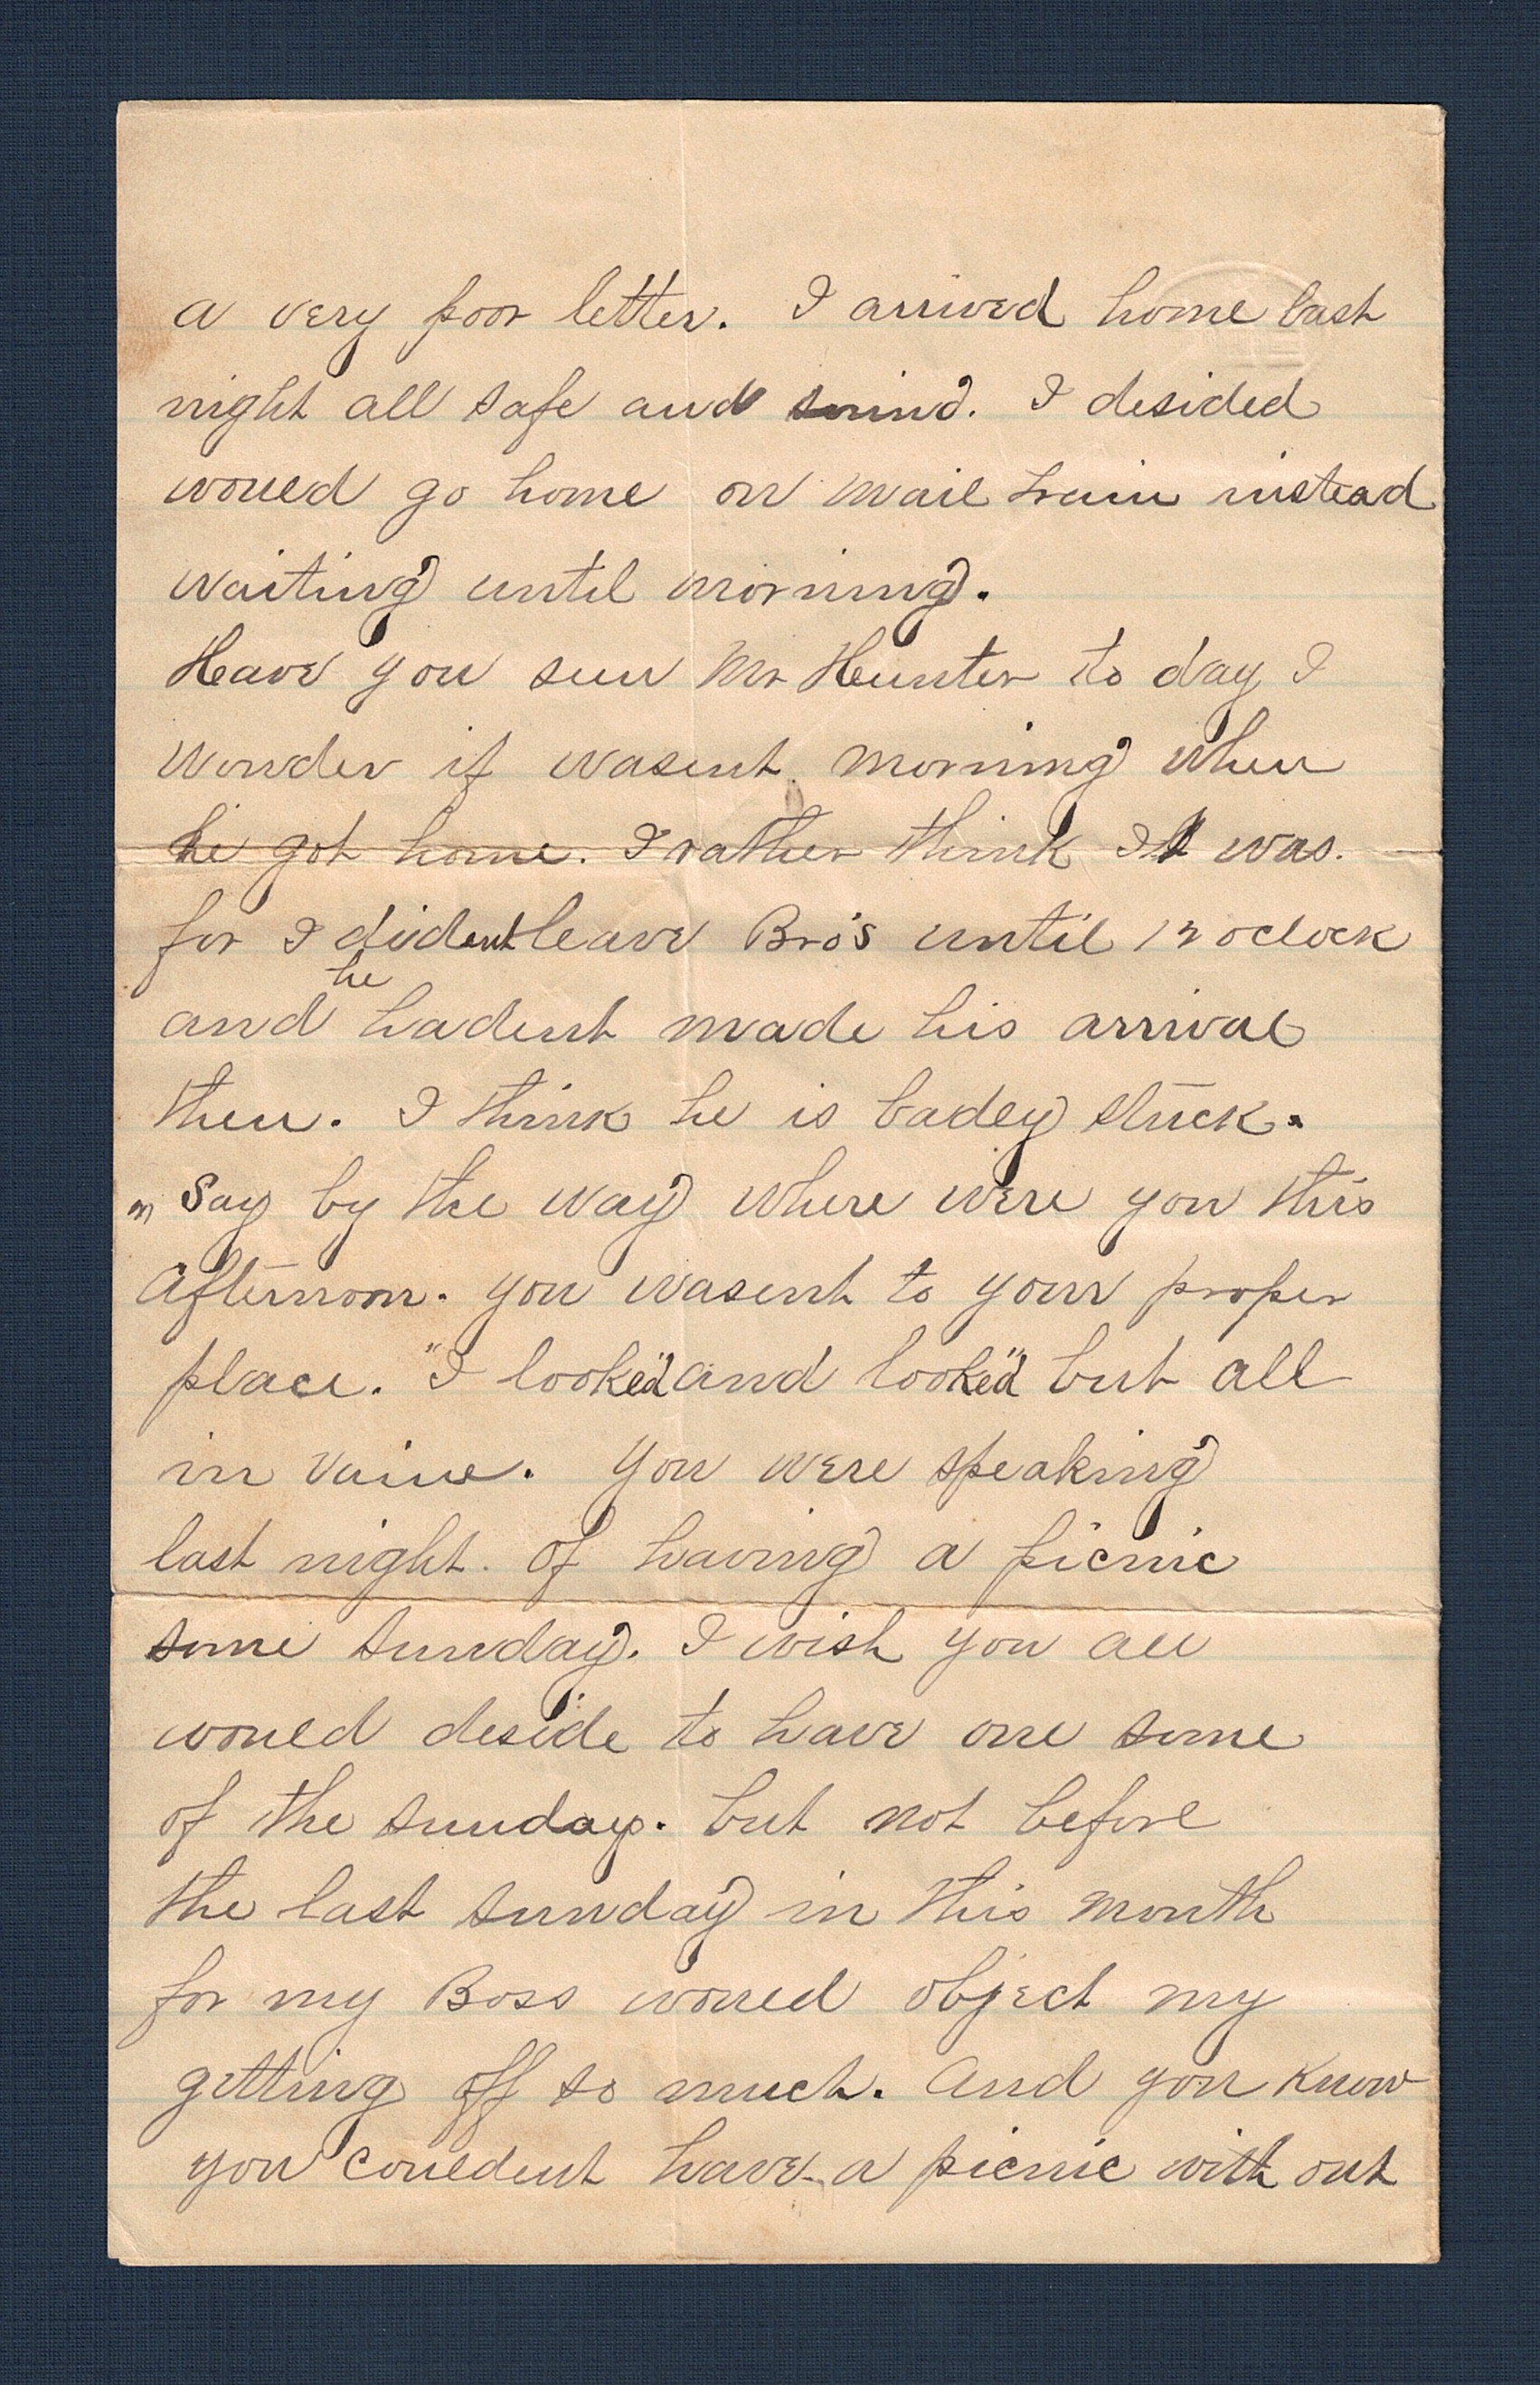 a very poor letter. I arrived home last
night all safe and sound. I desided
would go home on mail train instead
waiting until morning.
Have you seen Mr Hunter to day I
wonder if wasent morning when
he got home. I rather think It was.
for I dident leave Bro's until 12 oclock
and he hadent made his arrival
then. I think he is badey stuck.
" Say by the way where were you this
afternoon. you wasent to your proper
place. "I look"ed and look"ed but all
in vaine. You were speaking
last night. of having a picnic
some sunday. I wish you all
would deside to have one some
of the sundays. but not before
the last sunday in this month
for my Boss would object my
getting off so much. and you know
you couldent have a picnic with out